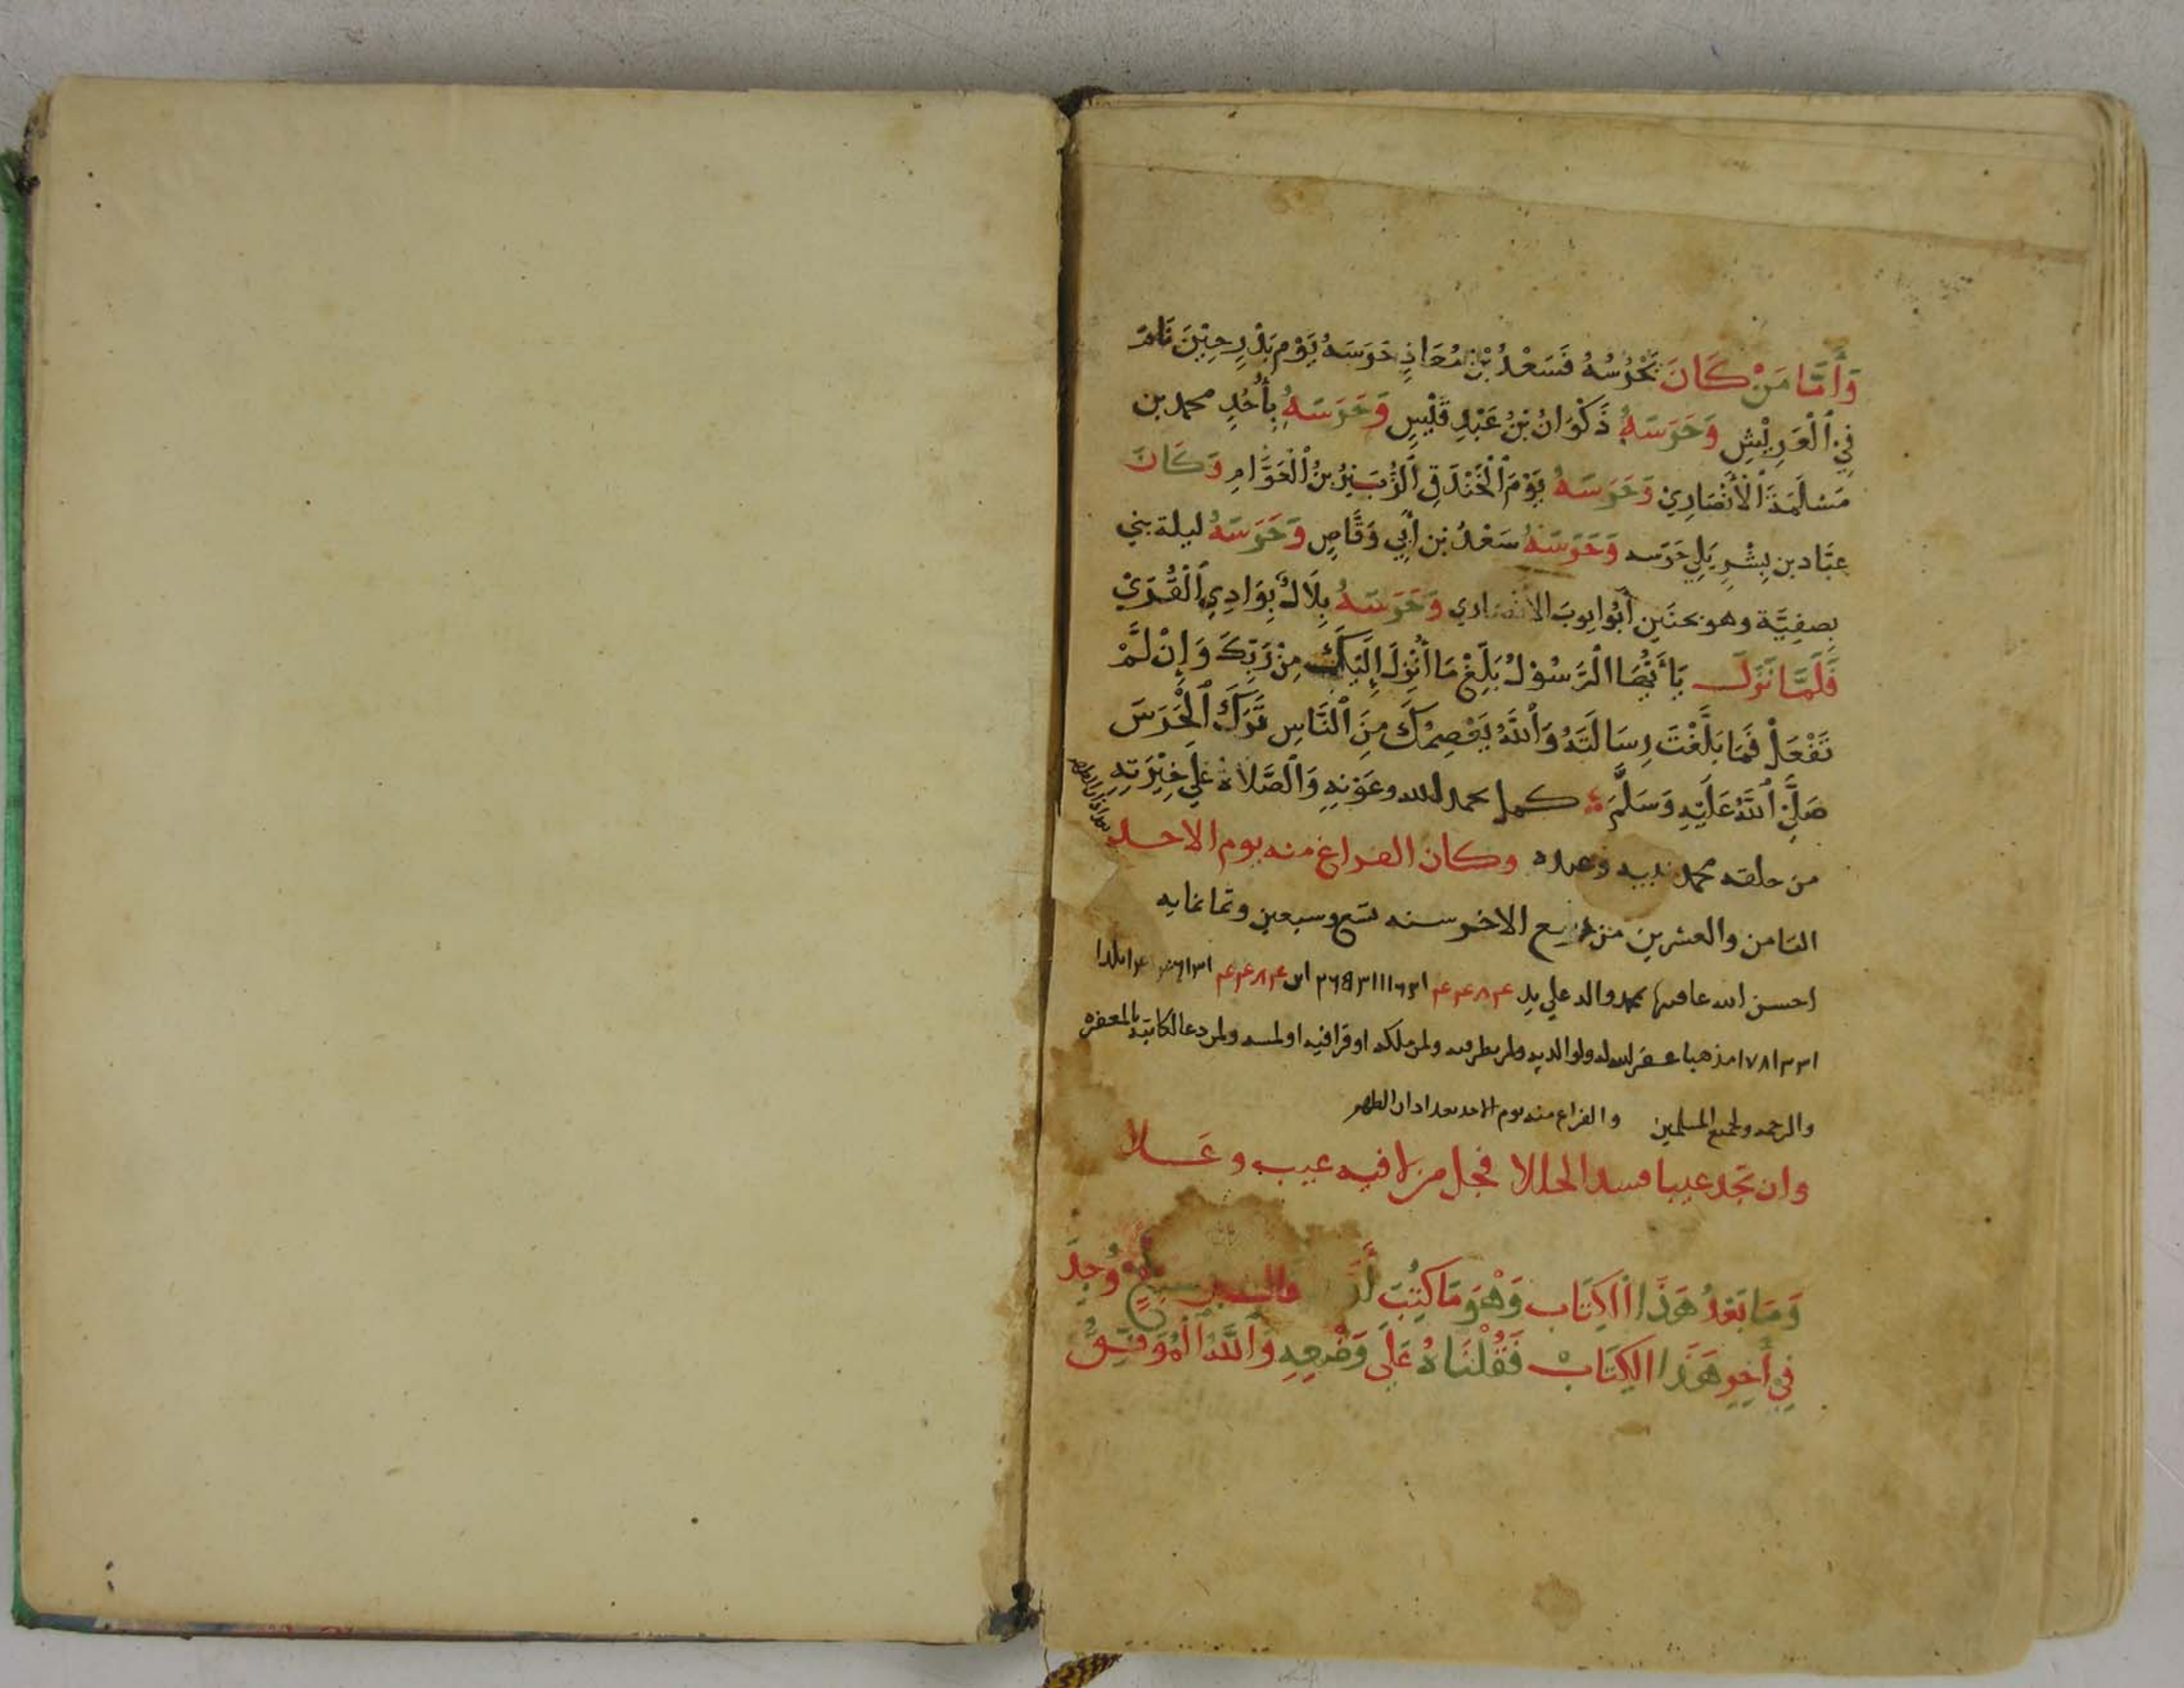 وَأَمَّا مَنْ كَانَ يَحْرُسُهُ فَسَعْدُ بْنُ مُعَاذٍ حَرَسَهُ يَوْمَ بَدْرٍ حِيْنَ نَامَ
فِي ٱلْعَرِيْشِ وَحَرَسَهُ ذَكْوَانُ بْنُ عَبْدِ قَيْسٍ وَحَرَسَهُ بِأُحُدٍ محمد بن
مَسْلَمَةَ ٱلْأَنْصَارِيْ وَحَرَسَهُ يَوْمَ ٱلْخَنْدَقِ ٱلزُّبَيْرُ بْنُ ٱلْعَوَّامِ وَكَانَ
عبَّاد بن بِشْرٍ يَلِي حَرَسه وَحَرَسَهُ سَعْدُ بن أَبِي وَقَّاصٍ وَحَرَسَهُ ليلة بني
بِصفِيَّة وهو بحنَين أَبُو ايوبَ الانصاري وَحَرَسَهُ بِلَالٌ بِوَادِي ٱلْقُرَيْ
فَلَمَّا نَزَلَ يَا أَيُّهَا ٱلرَّسُوْلُ بَلِّغْ مَا أُنْزِلَ إِلَيْكَ مِنْ رَبِّكَ وَإِنْ لَمْ
تَفْعَلْ فَمَا بَلَّغْتَ رِسَالَتَهُ وَٱللَّهُ يَعْصِمُكَ مِنَ ٱلنَّاسِ تَرَكَ ٱلْحَرَسَ
صَلَّى ٱللَّهُ عَلَيْهِ وَسَلَّمَ كمل بحمد الله وعَوْنِهِ وَٱلصَّلَاةُ عَلَى خِيْرَتِهِ
من خلقه محمد نبيه وعبده وكان الفراغ منه يوم الاحد
الثامن والعشرين من ربيع الاخر سنه تسع وسبعين وثمانمايه
احسن الله عاقبتها بمحمد واله علي يد
مذهبا غفر الله له ولوالديه ولمن نظر فيه ولمن ملكه او قرا فيه او لمسه ولمن دعا لكاتبه بالمغفره
والرحمه ولجميع المسلمين والفراغ منه يوم الاحد بعد اذان الظهر
وان تجد عيبا فسد الخللا فجل من لا فيه عيب وعلا
وَمَا بَعْدُ هَذَا ٱلكِتَاب وَهْوَ مَا كُتِبَتِ وُجِدَ
فِي أَخِرِ هَذَا الكِتَابْ فَنَقَلْنَاهُ عَلَى وَضْعِهِ وَٱللَّهُ ٱلْمُوَفِّقُ